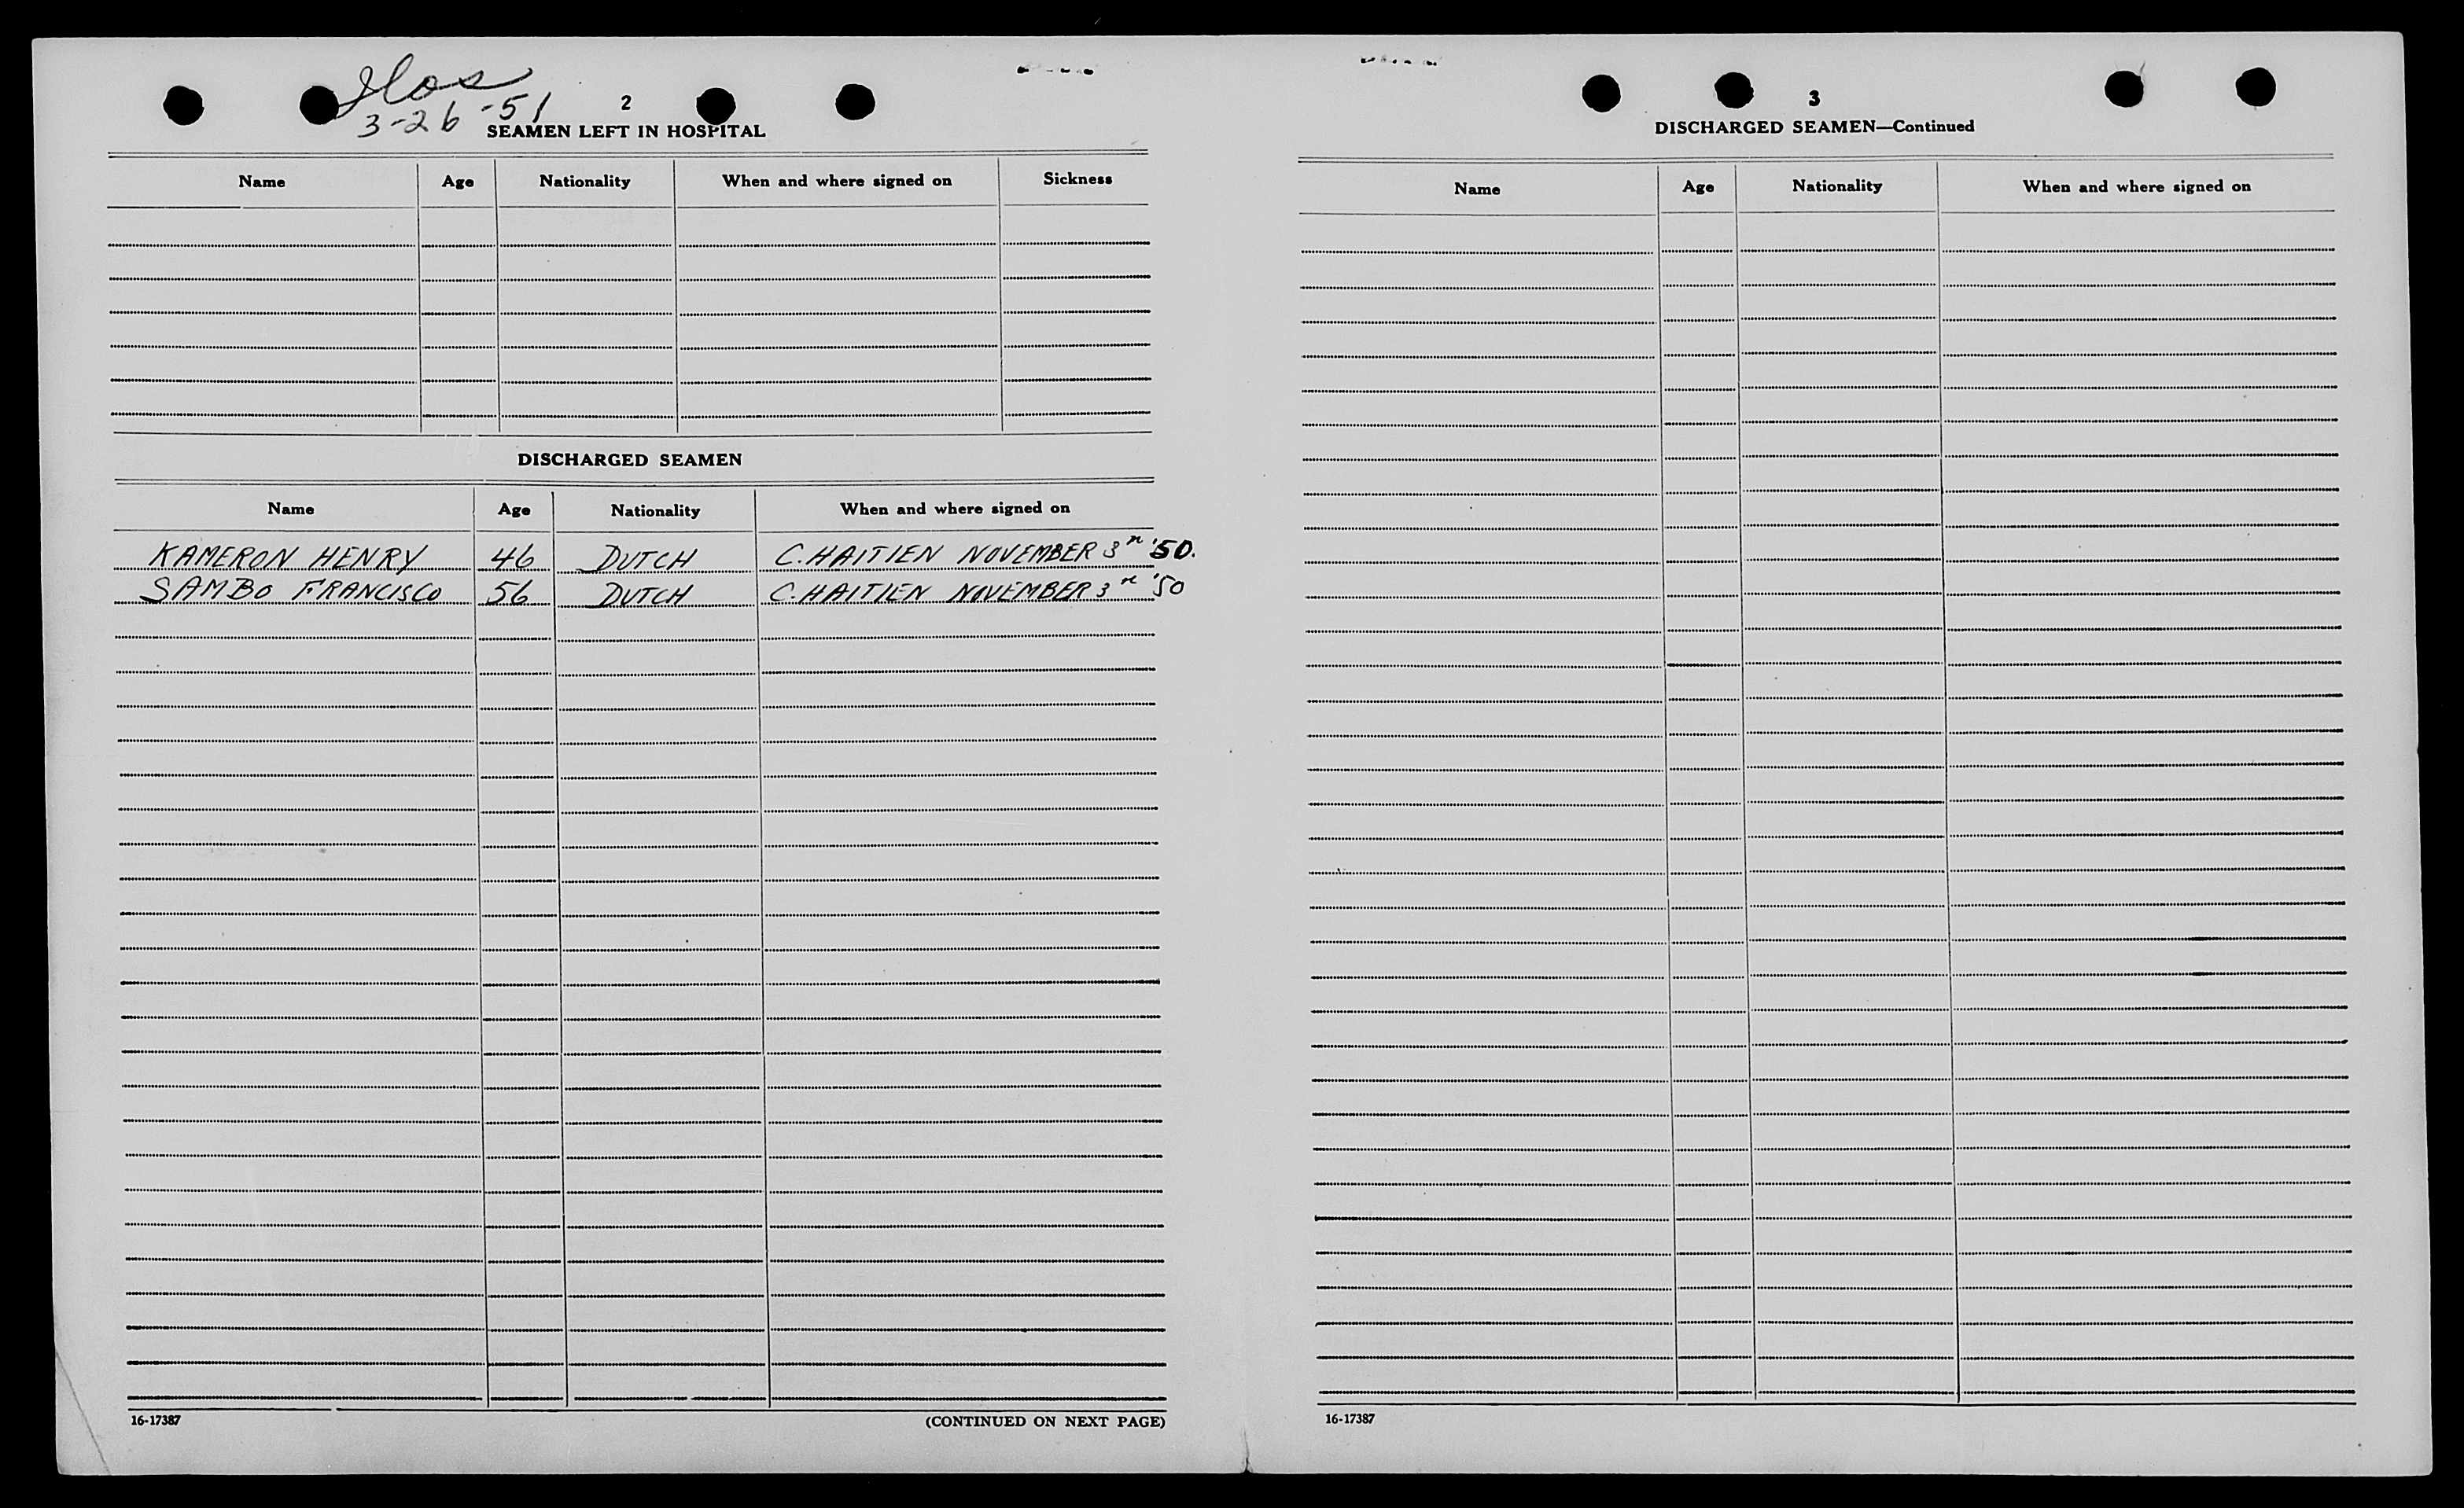 Ilos
3-26-51
2
SEAMEN LEFT IN HOSPITAL
Name Age Nationality When and where signed on Sickness
DISCHARGED SEAMEN
Name Age Nationality When and where signed on
KAMERON HENRY 46 DUTCH C. HAITIEN NOVEMBER 3 '50.
SAMBO FRANCISCO 56 DUTCH C. HAITIEN NOVEMBER 3 '50
16-17387 (CONTINUED ON NEXT PAGE)
3
DISCHARGED SEAMEN—Continued
Name Age Nationality When and where signed on
16-17387